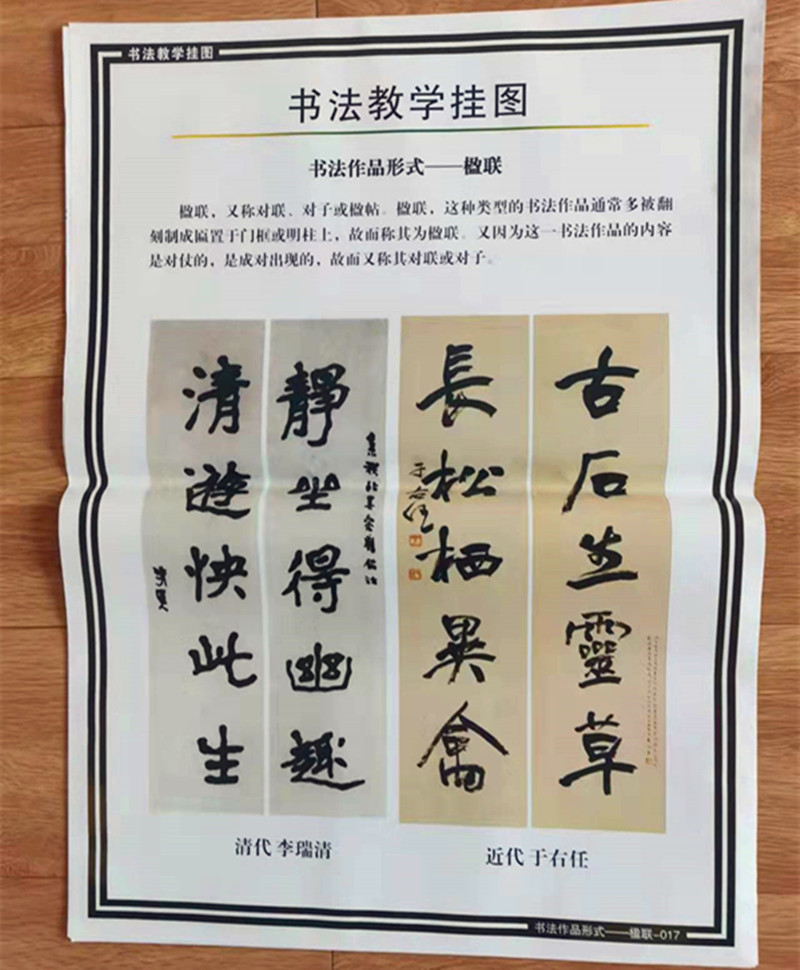 书法教学挂图
书法教学挂图
书法作品形式——楹联
楹联，又称对联、对子或楹帖。楹联，这种类型的书法作品通常多被翻
刻制成匾置于门框或明柱上，故而称其为楹联。又因为这一书法作品的内容
是对仗的，是成对出现的，故而又称其对联或对子。
靜坐得幽趣
清遊快此生
古石生靈草
長松栖異禽
于右任
清代 李瑞清
近代 于右任
书法作品形式——楹联-017